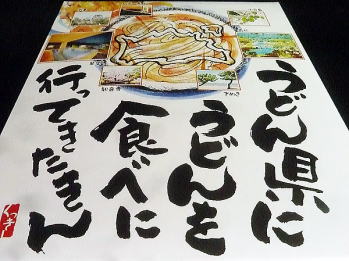 うどん県に
うどんを
食べに
行ってきたきん